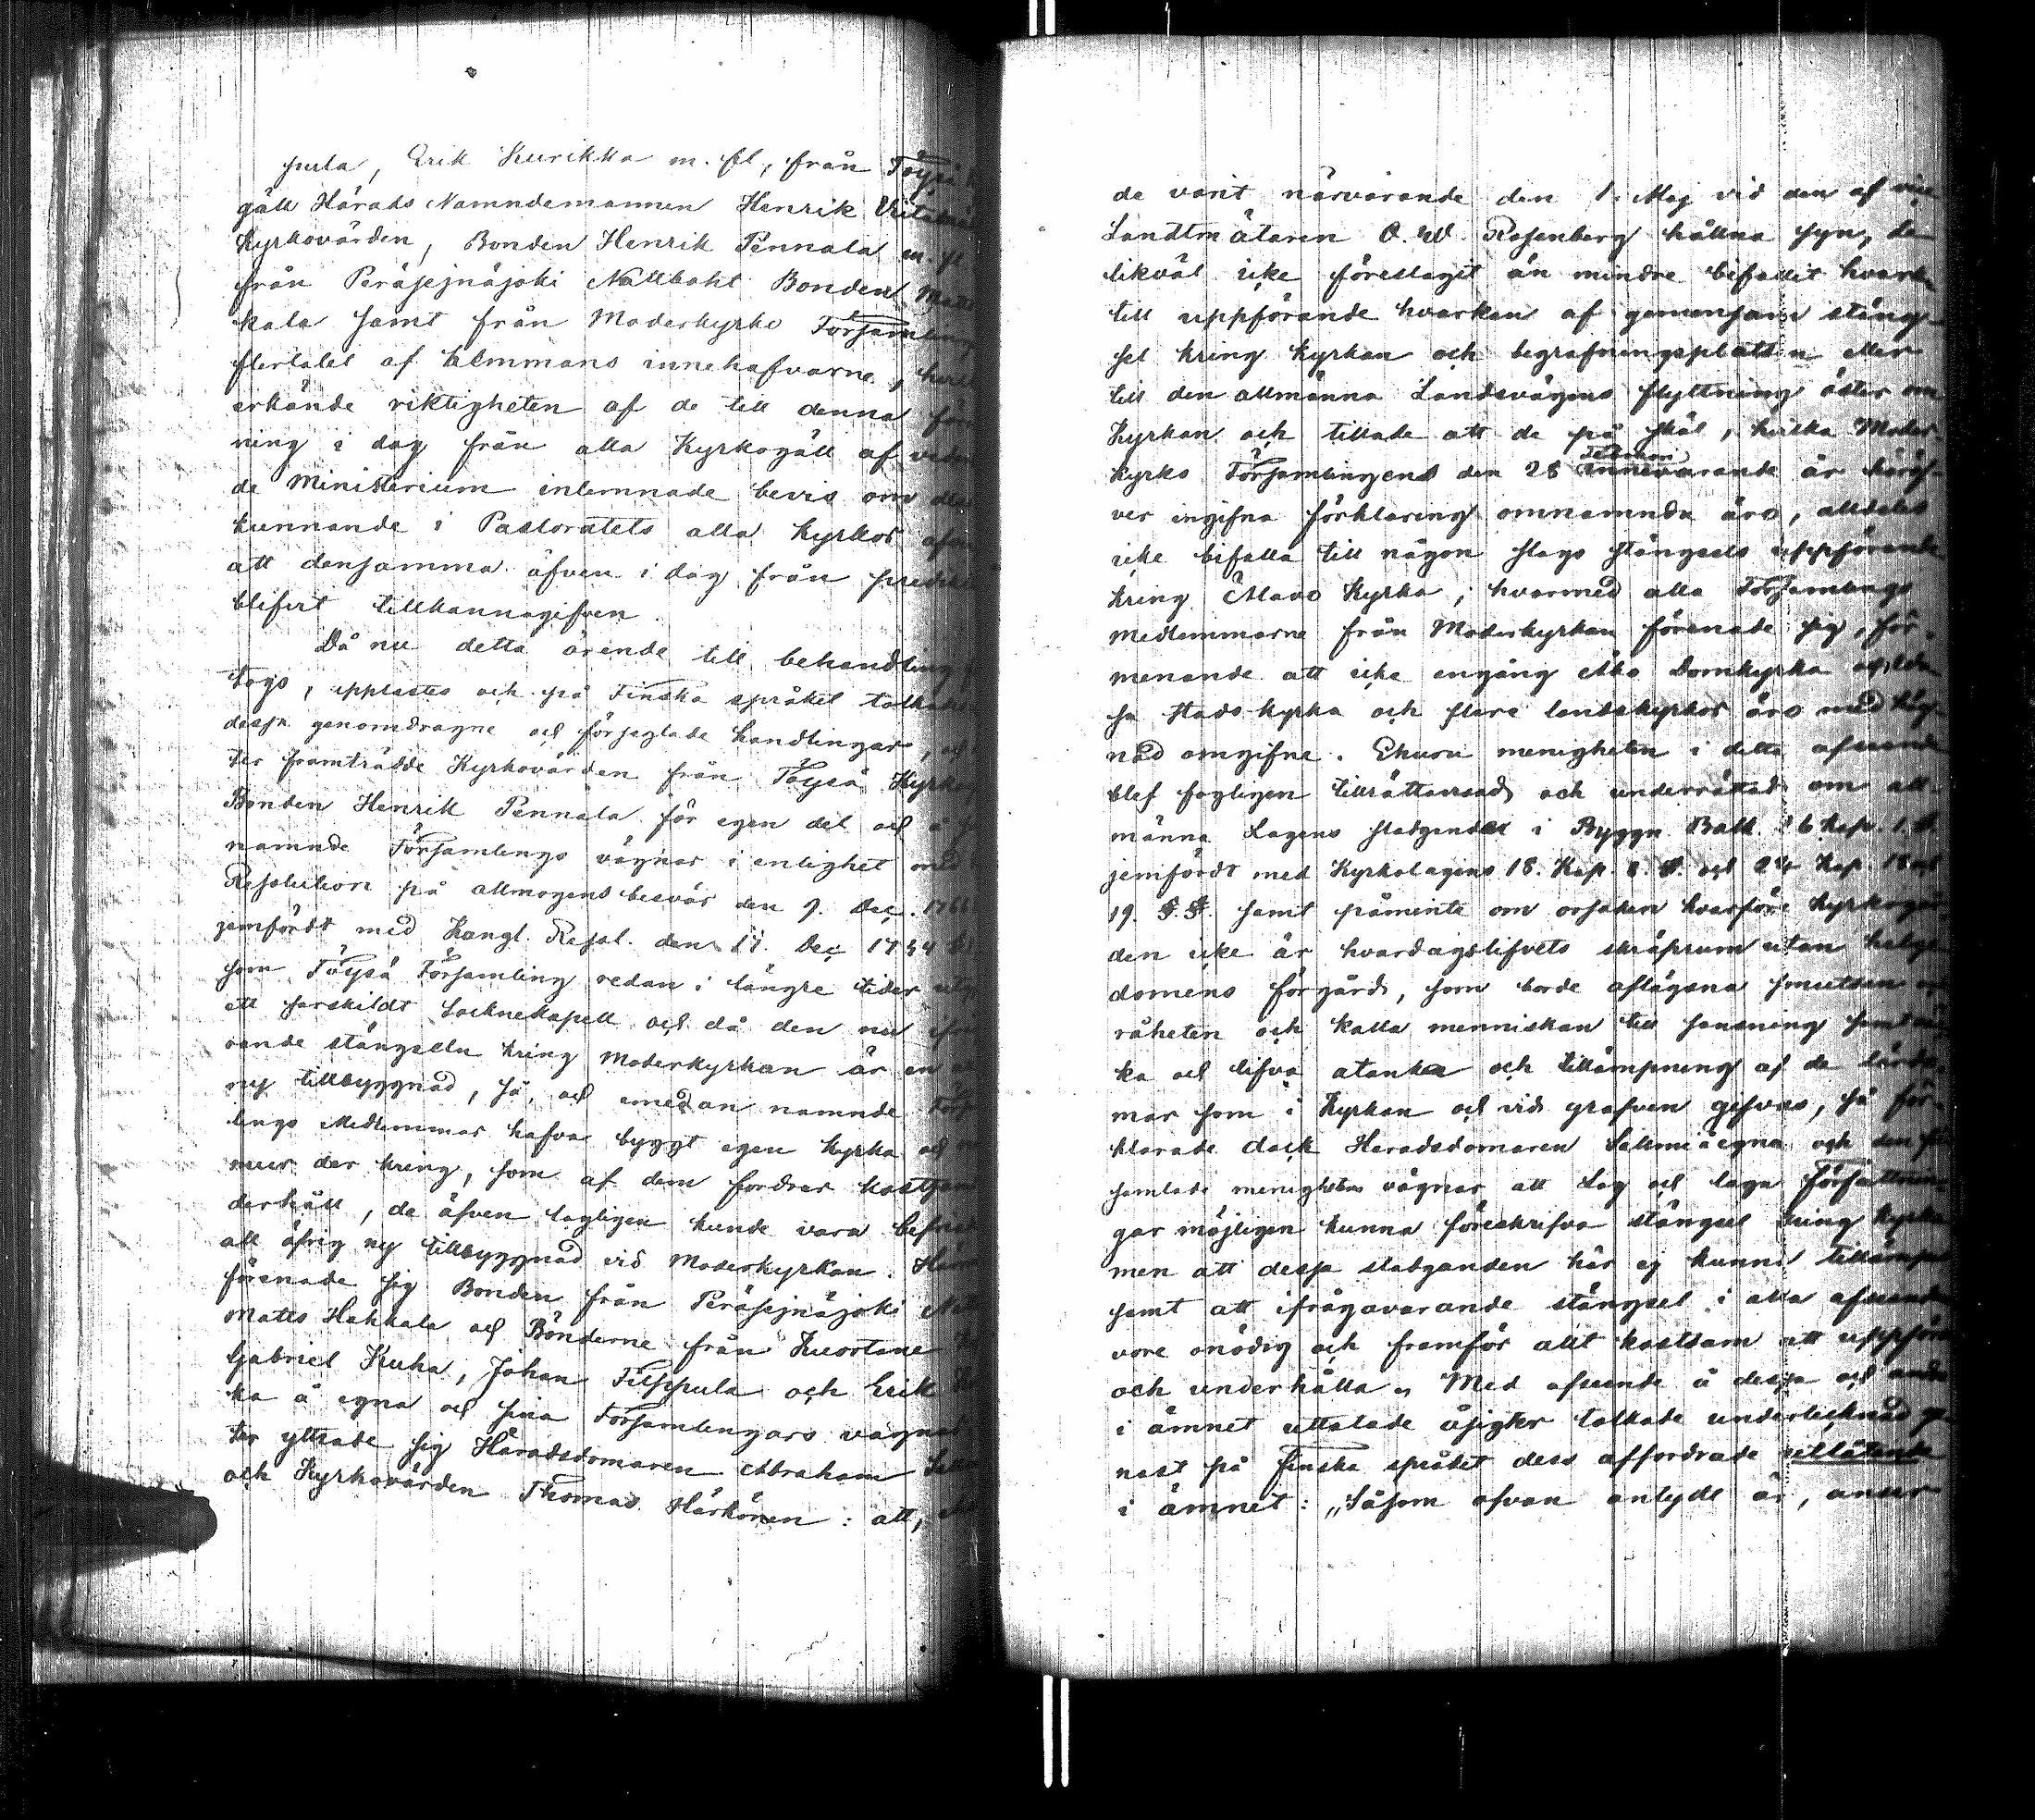 pula, Erik Kurikka m. fl., från Töysä
gäll Härads Nämndemannen Henrik
Kyrkovärden, Bonden Henrik Pennala m. fl
från Peräsejnäjoki Nattbäkt Bonden Matts
kala samt från Moderkyrko Församling
flertalet af hemmans innehafvarne,
erkände riktigheten af de till denna
ning i dag från alla Kyrkogäll af
de Ministerium inlemnade bevis om
kunnande i Pastoratets alla Kyrkor
att densamma äfven i dag från
blifvit tillkännagifven.
Då nu detta ärende till behandling
togs, upplästes och på Finska språket tolkades
dessa genomdragne och förseglade handlingar,
ter framträdde Kyrkovärden från Töysä
Bonden Henrik Pennala för egen del och å
nämnde Församlings vägnar i enlighet med
Resolution på allmogens besvär den 9. Dec. 1766
jemfördt med Kongl. Resol. den 17. Dec 1734
som Töysä Församling redan i längre tider
ett särskildt Sockne kapell och då den nu
rande stängseln kring Moderkyrkan är en
ny tillbyggnad, så, och emedan nämnde
lings Medlemmar hafva byggt egen Kyrka och
mur der kring, som af dem fordrar kostsam
derhåll, de äfven lagligen kunde vara
all öfrig ny tillbyggnad vid Moderkyrkan.
förenade sig Bonden från Peräsejnäjoki
Matts Hakkala och Bönderne från Kuortane
Gabriel Kuha, Johan Filppula och Erik
ka å egna och sina Församlingars vägnar
ter yttrade sig Häradsdomaren Abraham
och Kyrkovärden Thomas Härkönen: att,
de varit närvarande den 1. Maj vid den af
Landtmätaren O. W. Rosenberg hållna syn, de
likväl icke föreslagit än mindre bifallit
till uppförande hvarken af gemensam stäng-
sel kring Kyrkan och begrafningsplatsen eller
till den allmänna Landsvägens flyttning öster om
Kyrkan och tillade att de på skäl, hvilka Moder-
kyrko Församlingens den 28 innevarande
ver ingifna förklaring omnämnda äro, alldeles
icke bifalla till någon slags stängsels uppförande
kring Alavo Kyrka, hvarmed alla Församlings
medlemmarne från Moderkyrkan förenade sig, för-
menande att icke engång Åbo Domkyrka
sa stads kyrka och flere landskyrkor äro med
nad omgifne. Ehuru menigheten i detta afseende
blef fogligen tillrättavisad och underrättad om all-
männa Lagens stadganden i Byggn. Balk. 26 Kap. 1. §.
jemfördt med Kyrkolagens 18. Kap. 8. §. och 24 Kap. 18 och
19. §.§. samt påminte om orsaken hvarföre kyrkogår
den icke är hvardagslifvets skräprum utan helge
domens förgård, som borde aflägsna smutsen och
råheten och kalla menniskan till sansning
ka och lifva åtanka och tillämpning af de lärdo
mar som i Kyrkan och vid grafven gifvas, så för-
klarade dock Häradsdomaren Salmi å egna och den
samlade menighetens vägnar att Lag och laga Författnin-
gar möjligen kunna föreskrifva stängsel kring Kyrka
men att dessa stadganden här ej kunna tillämpas
samt att ifrågavarande stängsel i alla afseenden
vore onödig och framför allt kostsam att uppföra
och underhålla. Med afseende å dessa och andra
i ämnet uttalade åsigter tolkade undertecknad
nast på finska språket dess affordrade utlåtande
i ämnet: „Såsom ofvan antydt är, anser